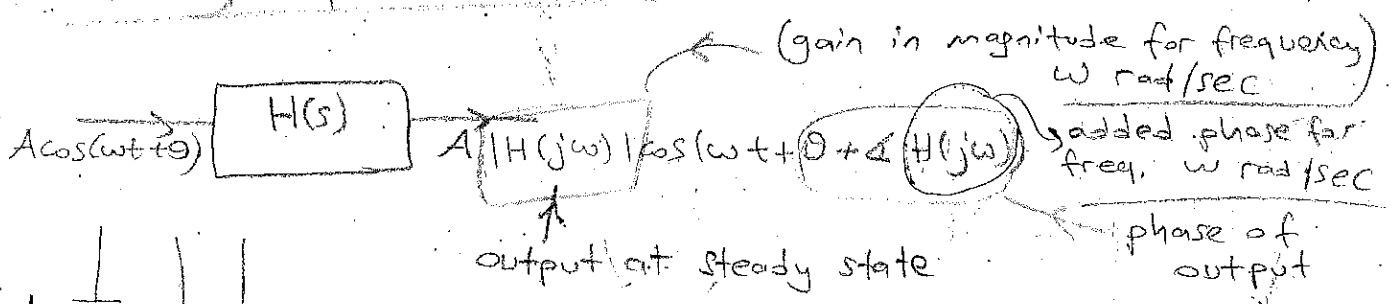 (gain in magnitude for frequency)
ω rad/sec
H(s)
Acos(ωt+θ)
A|H(jω)|cos(ωt+θ+∡H(jω))
added phase for
freq. ω rad/sec
output at steady state
phase of
output